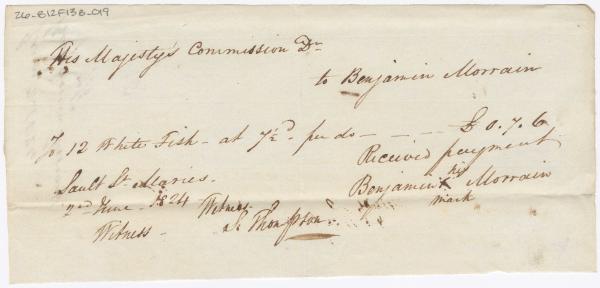 26-B12F13B-019
His Majesty's Commission Dr
to Benjamin Morrain
To 12 White Fish - at 7½d. per do - - - - £0.7.6
Received payment
Sault St Maries.
his
Benjamin x Morrain
mark
2nd June 1824 Witness
Witness - S. Thompson.